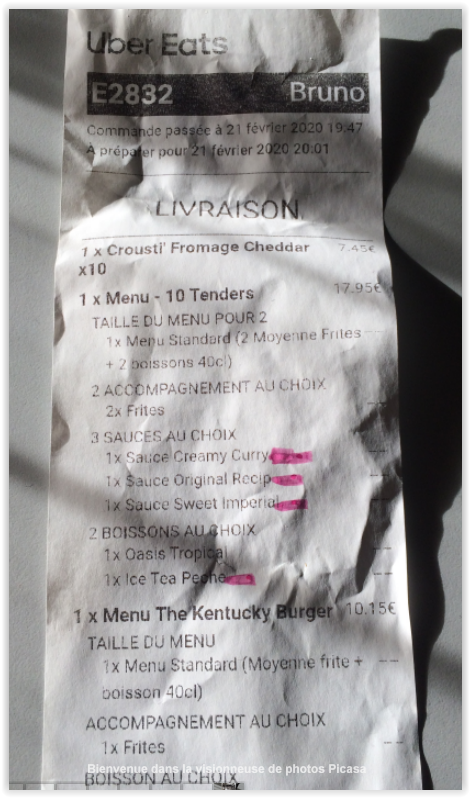 Uber Eats
E2832 Bruno
Commande passée à 21 février 2020 19:47
A préparer pour 21 février 2020 20:01
LIVRAISON
1 x Crousti' Fromage Cheddar 7.45€
x10
1 x Menu - 10 Tenders 17.95€
TAILLE DU MENU POUR 2
1x Menu Standard (2 Moyenne Frites ---
+ 2 boissons 40cl)
2 ACCOMPAGNEMENT AU CHOIX
2x Frites ---
3 SAUCES AU CHOIX
1x Sauce Creamy Curry ---
1x Sauce Original Recip ---
1x Sauce Sweet Imperial ---
2 BOISSONS AU CHOIX
1x Oasis Tropical ---
1x Ice Tea Peche ---
1 x Menu The Kentucky Burger 10.15€
TAILLE DU MENU
1x Menu Standard (Moyenne frite + ---
boisson 40cl)
ACCOMPAGNEMENT AU CHOIX
1x Frites ---
Bienvenue dans la visionneuse de photos Picasa
BOISSON AU CHOIX